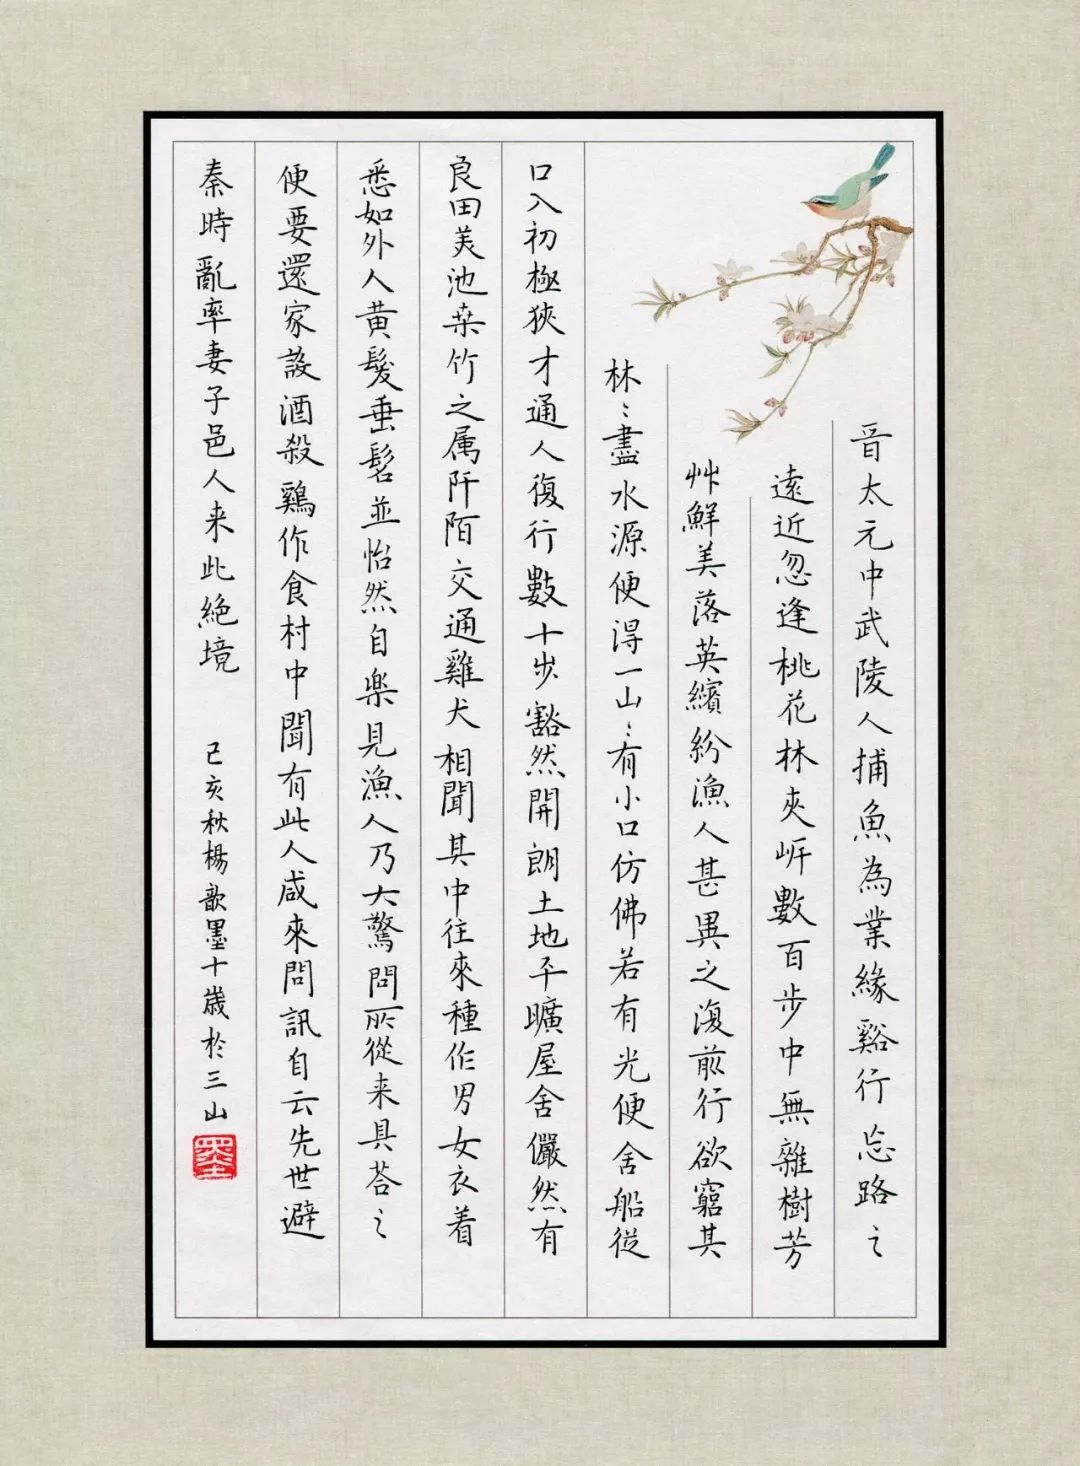 晉太元中武陵人捕魚為業緣谿行忘路之
遠近忽逢桃花林夾岍數百步中無雜樹芳
艸鮮美落英繽紛漁人甚異之復前行欲窮其
林〻盡水源便得一山〻有小口仿佛若有光便舍船從
口入初極狹才通人復行數十步豁然開朗土地平曠屋舍儼然有
良田美池桒竹之属阡陌交通雞犬相聞其中往來種作男女衣着
悉如外人黄髮垂髫並怡然自樂見漁人乃大驚問所從来具荅之
便要還家設酒殺鷄作食村中聞有此人咸來問訊自云先世避
秦時亂率妻子邑人来此絶境
己亥秋楊歆墨十歲於三山
墨